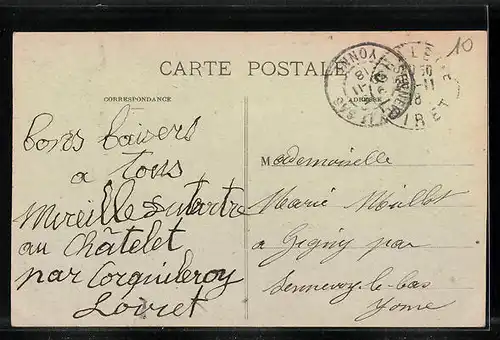 10
CARTE POSTALE
CORRESPONDANCE
ADRESSE
YONNE
LOIRET
bons baisers
a tous
Mireille Dutartre
au Châtelet
par Corquileroy
Loiret
Mademoiselle
Marie Millot
a Gigny par
Sennevoy-le-bas
Yonne